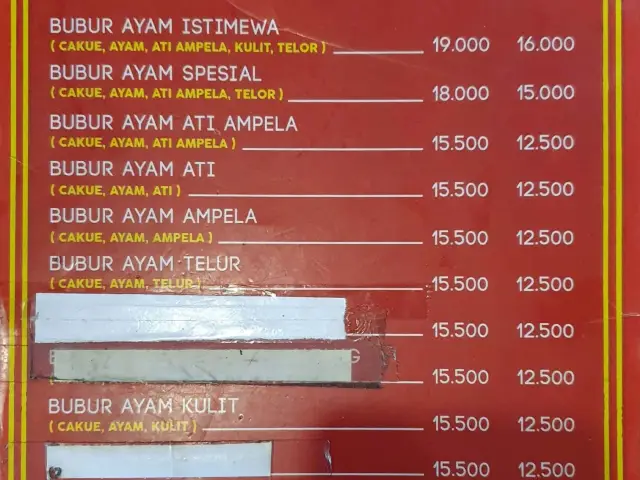 BUBUR AYAM ISTIMEWA
( CAKUE, AYAM, ATI AMPELA, KULIT, TELOR ) 19.000 16.000
BUBUR AYAM SPESIAL
( CAKUE, AYAM, ATI AMPELA, TELOR ) 18.000 15.000
BUBUR AYAM ATI AMPELA
( CAKUE, AYAM, ATI AMPELA ) 15.500 12.500
BUBUR AYAM ATI
( CAKUE, AYAM, ATI ) 15.500 12.500
BUBUR AYAM AMPELA
( CAKUE, AYAM, AMPELA ) 15.500 12.500
BUBUR AYAM TELUR
( CAKUE, AYAM, TELUR ) 15.500 12.500
15.500 12.500
15.500 12.500
BUBUR AYAM KULIT
( CAKUE, AYAM, KULIT ) 15.500 12.500
15.500 12.500